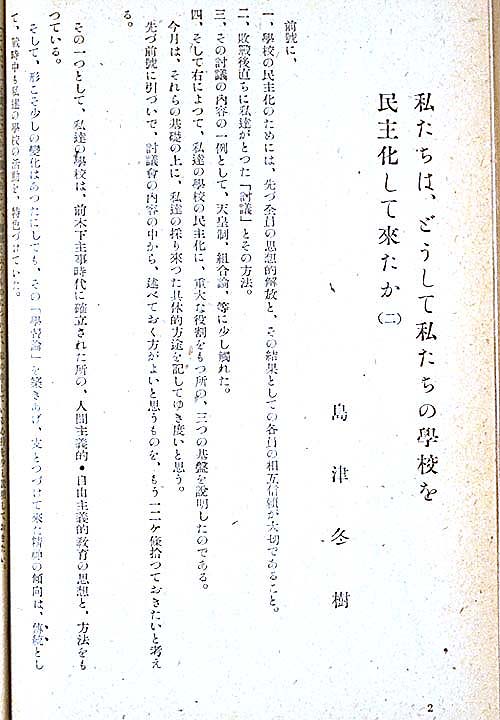 私たちは、どうして私たちの學校を
民主化して來たか(二)
島津冬樹
前號に、
一、學校の民主化のためには、先づ全員の思想的解放と、その結果としての各員の相互信頼が大切であること。
二、敗戰後直ちに私達がとつた「討議」とその方法。
三、その討議の内容の一例として、天皇制、組合論、等に少し觸れた。
四、そして右によつて、私達の學校の民主化に、重大な役割をもつ所の、三つの基盤を説明したのである。
今月は、それらの基礎の上に、私達の採り來つた具体的方途を記してゆき度いと思う。
先づ前號に引ついで、討議會の内容の中から、述べておく方がよいと思うものを、もう一二ケ條拾つておきたいと考え
る。
その一つとして、私達の學校は、前木下主事時代に確立された所の、人間主義的・自由主義的教育の思想と、方法をも
つている。
そして、形こそ少しの變化はあつたにしても、その「學習論」を築きあげ、支えつづけて來た精神の傾向は、傳統とし
て、戰時中も私達の學校の活動を、特色づけていた。
2